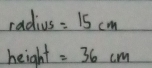 radius = 15 cm
height = 36 cm